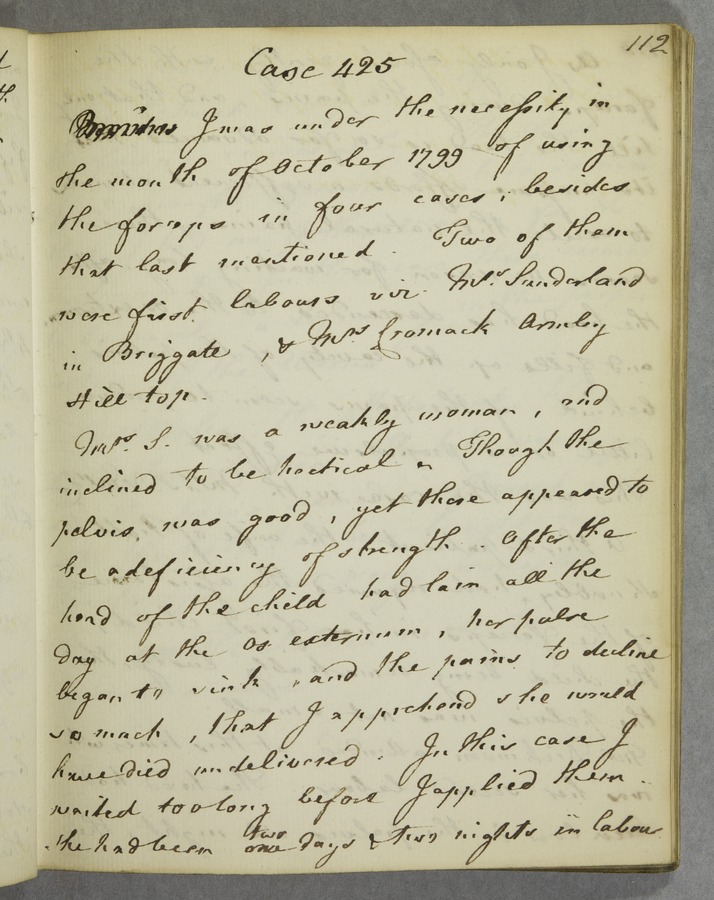 112
Case 425
I was under the necessity in
the month of October 1799 of using
the forceps in four cases; besides
that last mentioned. Two of them
were first labours viz. Mrs. Sunderland
in Briggate, & Mrs Cromack Armby
Hill top.
Mrs. S. was a weakly woman, and
inclined to be hectical. Though the
pelvis, was good, yet there appeared to
be a deficiency of strength. After the
head of the child had lain all the
day at the Os externum, her pulse
began to sink, and the pains to decline
so much, that I apprehend she would
have died undelivered. In this case I
waited too long before I applied them.
She had been two days & two nights in labour